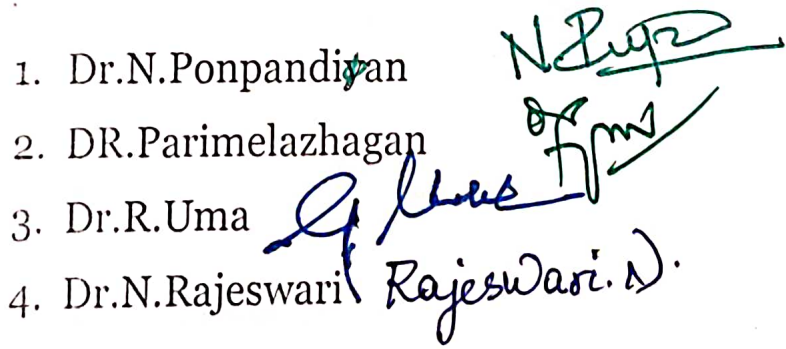 1. Dr.N.Ponpandiyan
2. DR.Parimelazhagan
3. Dr.R.Uma
4. Dr.N.Rajeswari Rajeswari. N.